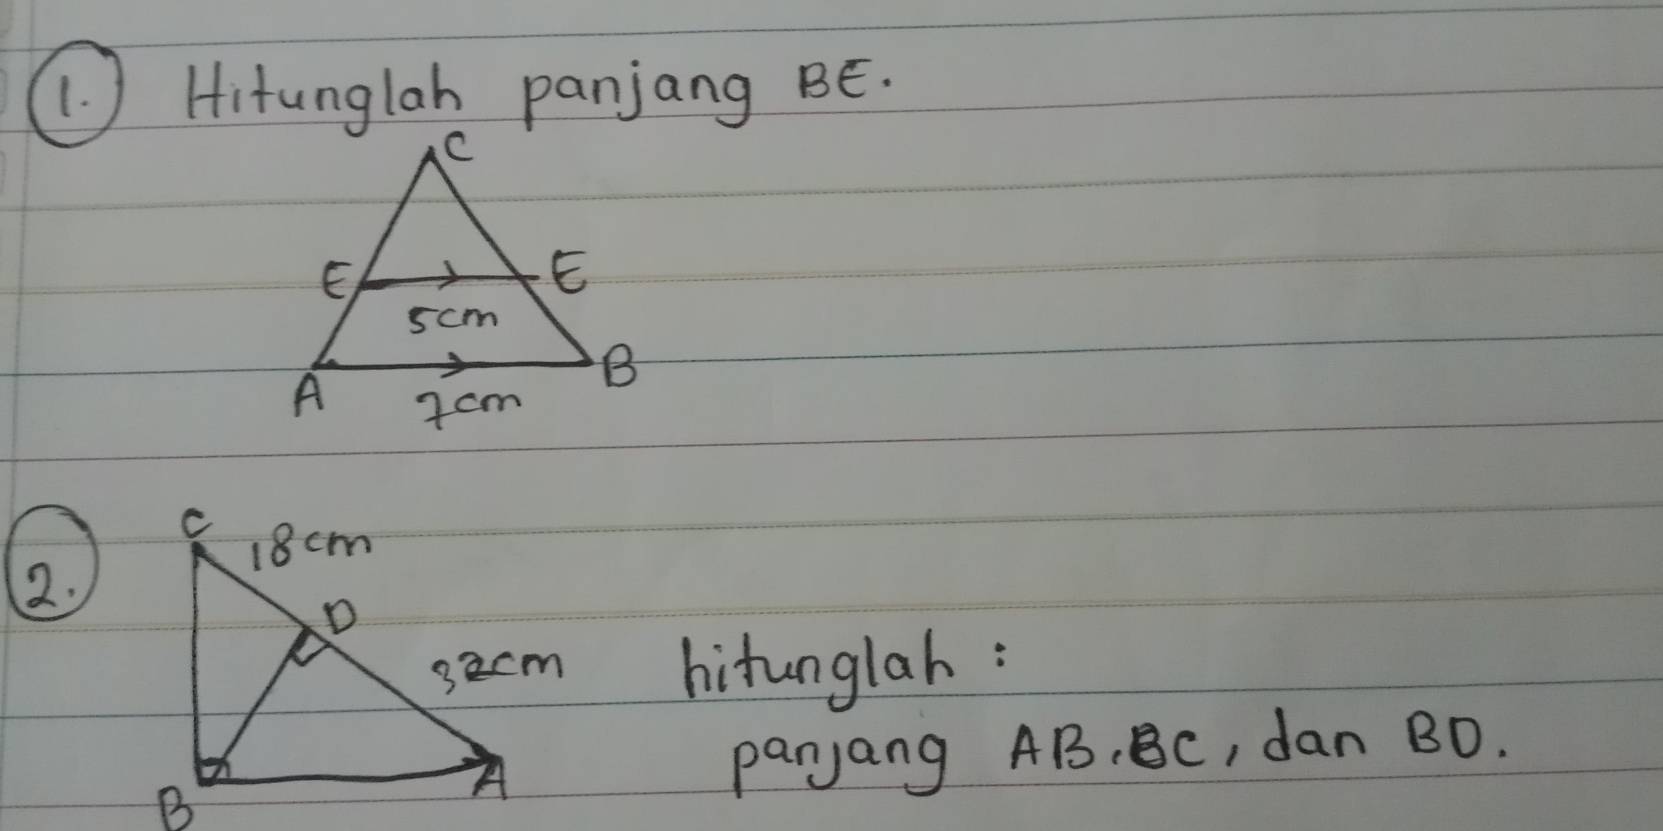 1. Hitunglah panjang BE.
C
E E
5cm
A B
7cm
2. C 18cm
D
32cm hitunglah :
panjang AB, BC, dan BD.
B A